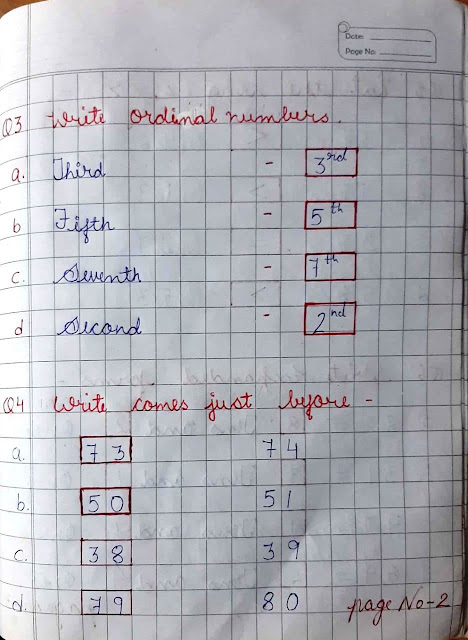 Date:
Page No:
Q3 Write ordinal numbers.
a. Third - 3rd
b Fifth - 5th
c. Seventh - 7th
d Second - 2nd
Q4 Write comes just before -
a. 73 74
b. 50 51
c. 38 39
d. 79 80 page No-2